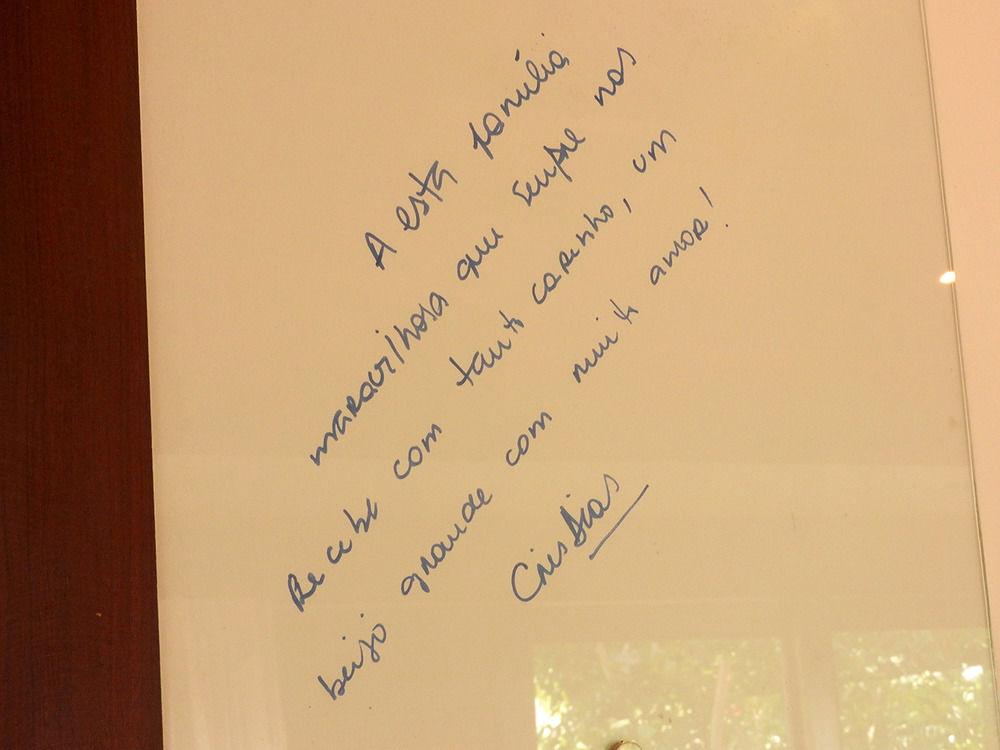 A esta família
maravilhosa que sempre nos
Recebe com tanto carinho, um
beijo grande com muito amor!
Cris Dias